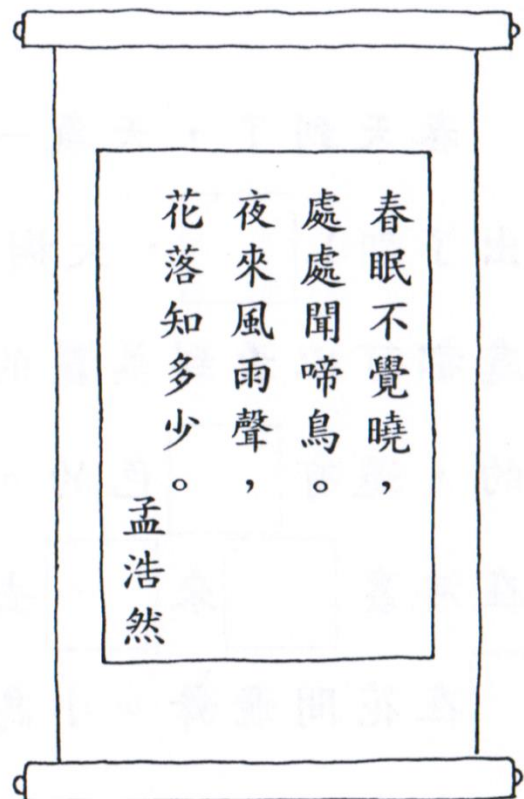 春眠不覺曉，
處處聞啼鳥。
夜來風雨聲，
花落知多少。
孟浩然